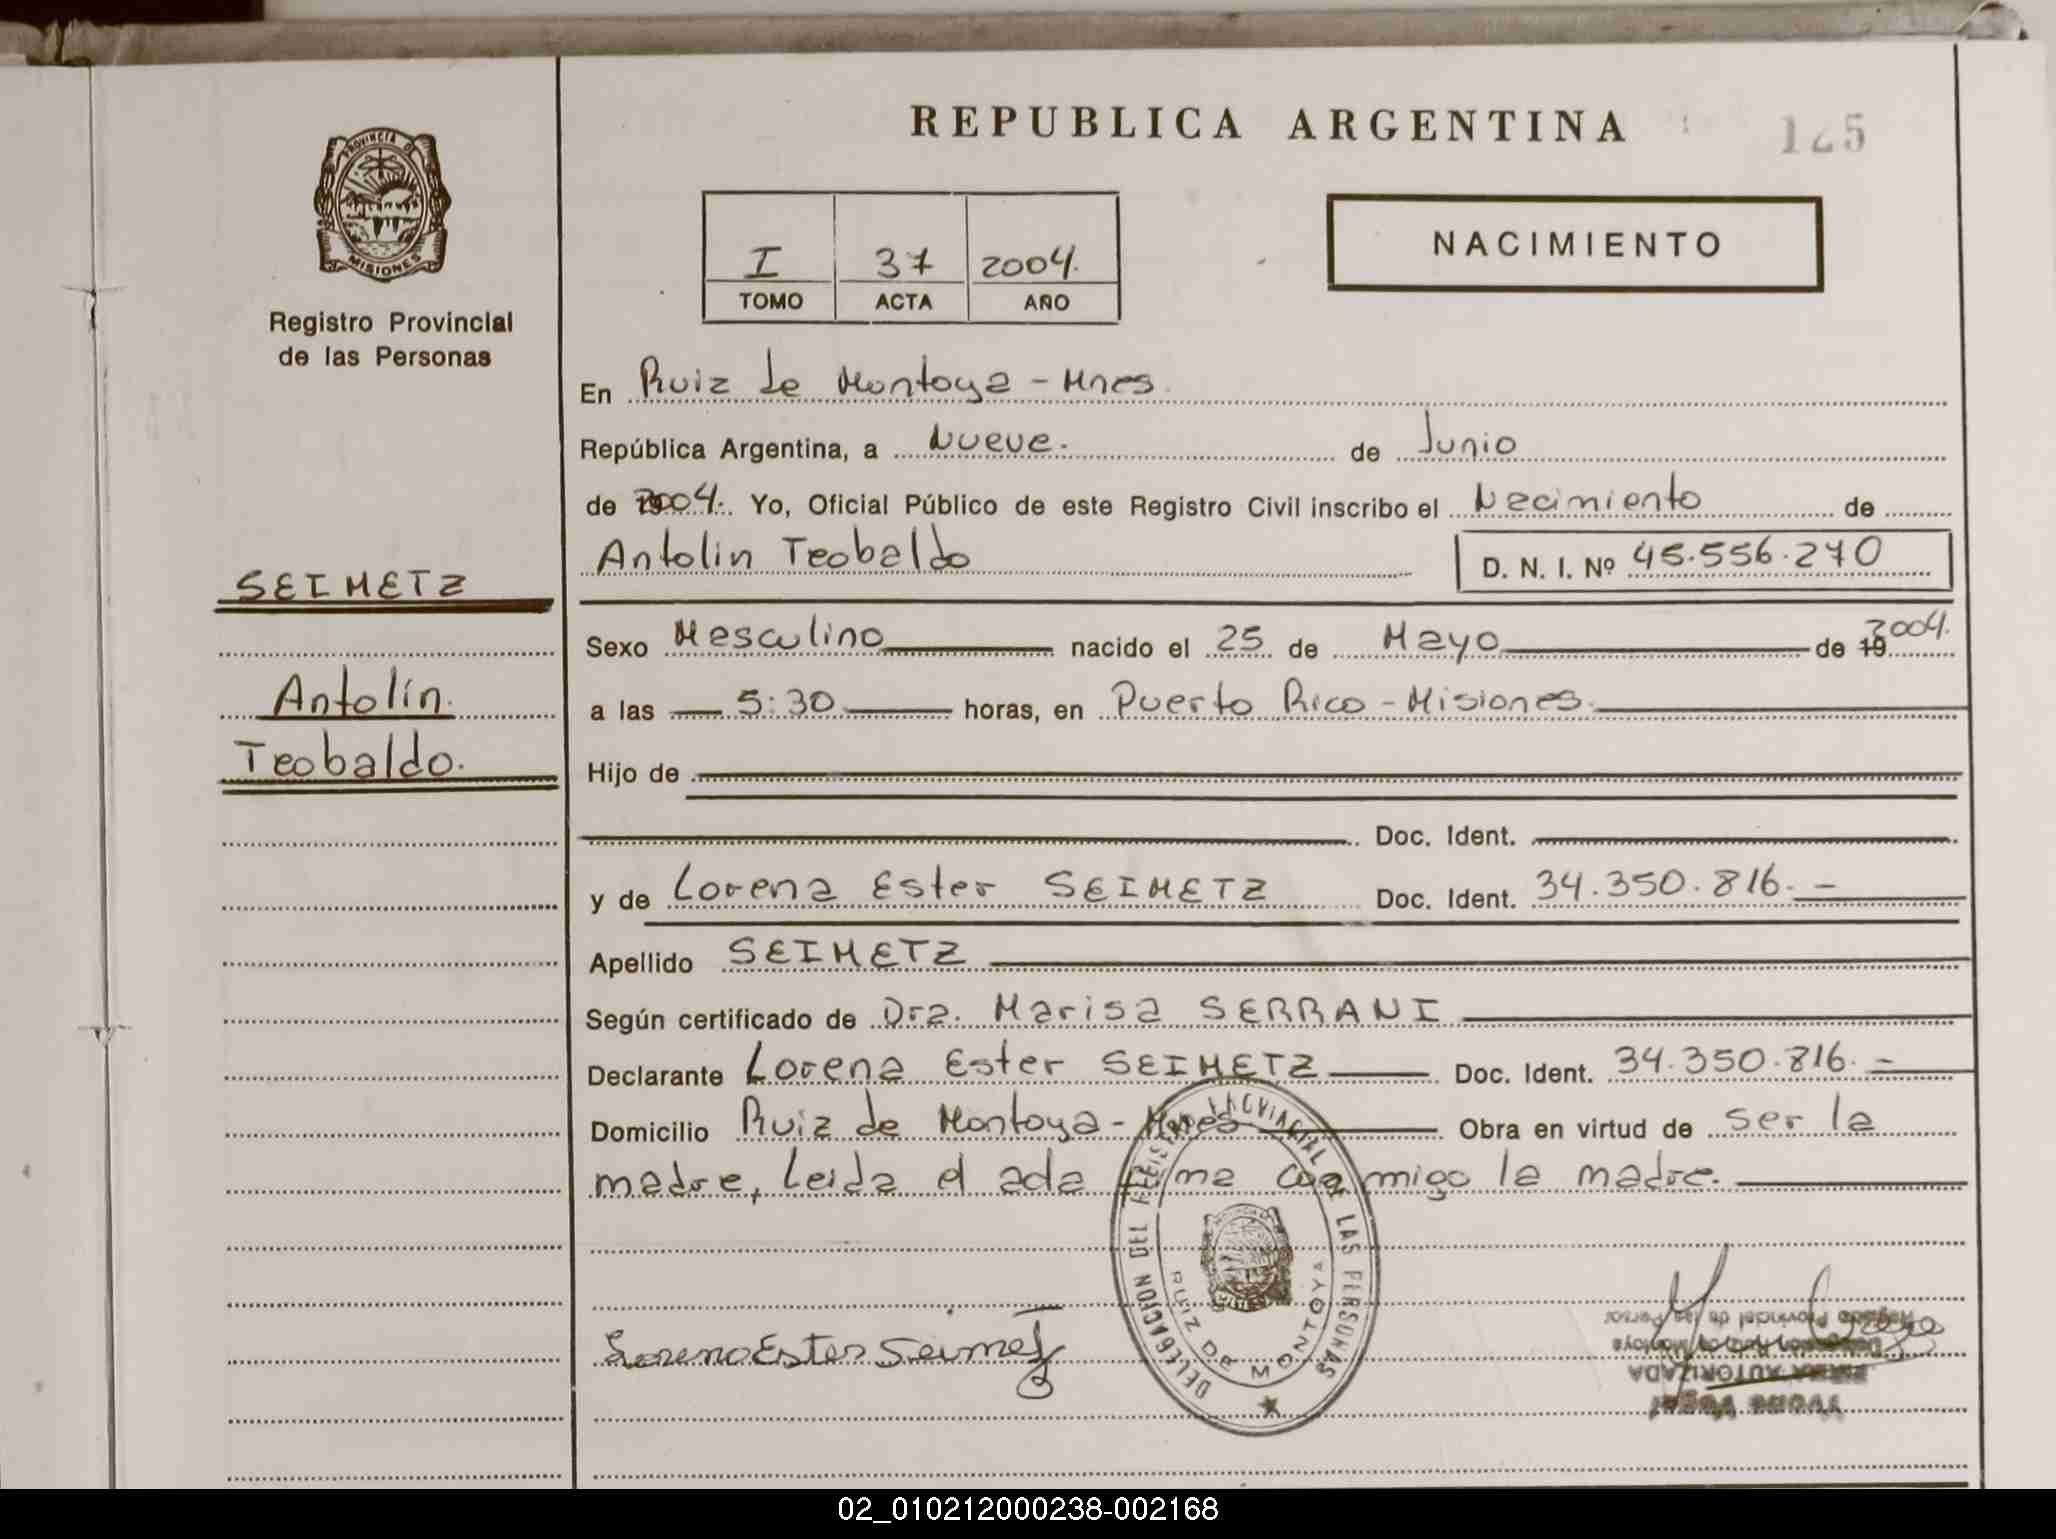 REPUBLICA ARGENTINA
125
PROVINCIA D
MISIONES
Registro Provincial
de las Personas
I 37 2004.
TOMO ACTA AÑO
NACIMIENTO
En Ruiz de Montoya - Mnes.
República Argentina, a Nueve. de Junio
de 2004. Yo, Oficial Público de este Registro Civil inscribo el Nacimiento de
Antolin Teobaldo
D. N. I. Nº 45.556.270
SEIMETZ
Antolín.
Teobaldo.
Sexo Masculino nacido el 25 de Mayo de 19 2004.
a las 5:30 horas, en Puerto Rico - Misiones.
Hijo de
Doc. Ident.
y de Lorena Ester SEIMETZ Doc. Ident. 34.350.816. -
Apellido SEIMETZ
Según certificado de Dra. Marisa SERRANI
Declarante Lorena Ester SEIMETZ Doc. Ident. 34.350.816. -
Domicilio Ruiz de Montoya - Mnes Obra en virtud de ser la
madre, Leida el acta firma con migo la madre.
DELEGACION DEL REGISTRO PROVINCIAL DE LAS PERSONAS
RUIZ DE MONTOYA
Lorena Ester Seimetz
Registro Provincial de las Person
Delegación Ruiz de Montoya
FIRMA AUTORIZADA
02_010212000238-002168